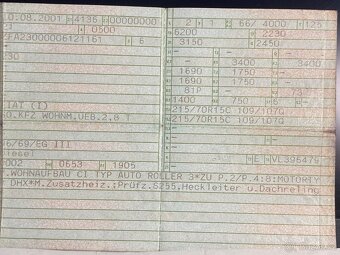 10.08.2001 4136 00000000
0500
FA23000006121161 6
30
IAT (I)
O.KFZ WOHNM.UEB.2,8 T
/69/EG III
Diesel
2002 0653 1905
2 1 66/ 4000/ 125
6200 2230
3150 2450
- -
- 3400 - 3400
1690 1750 -
1690 1750 -
81P - 73
1400 750
215/70R15C 109/107Q
215/70R15C 109/107Q
-
-
-
E VL396476
.WOHNAUFBAU CI TYP AUTO ROLLER 3*ZU P.2/P.4:8:MOTORTY
DHX*M.Zusatzheiz.;Prüfz.S255,Heckleiter u.Dachreling